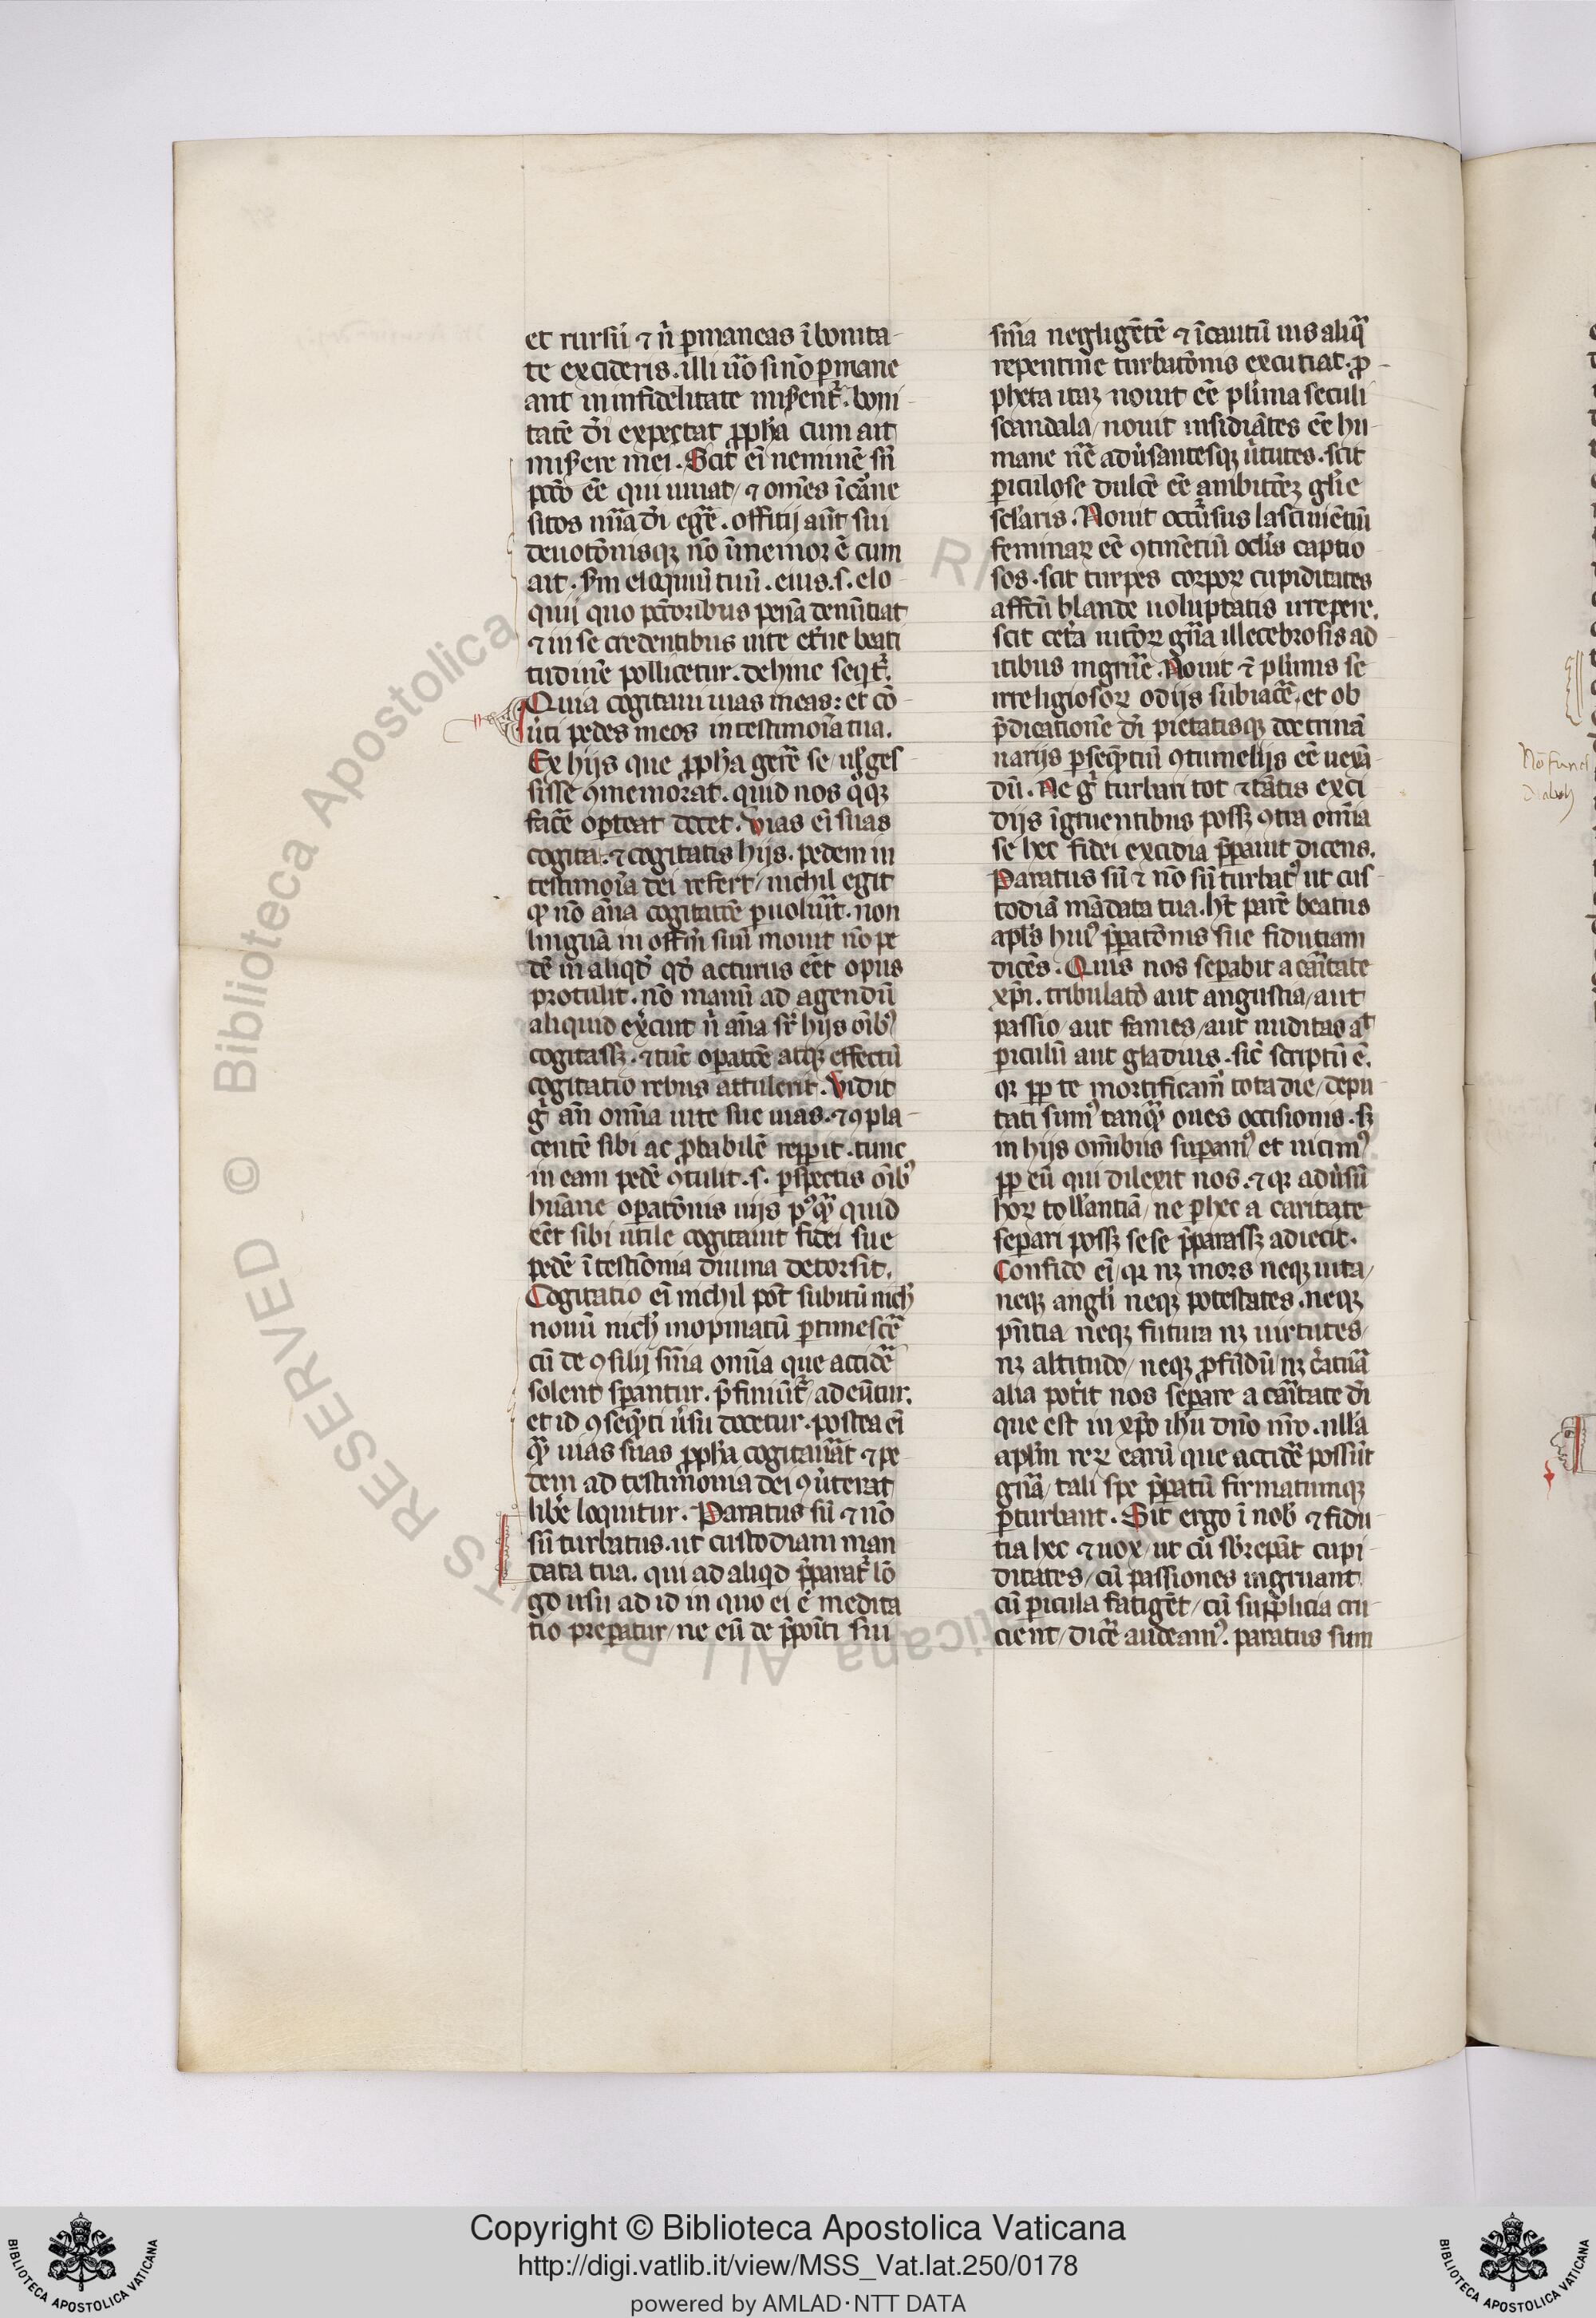 et rursū ⁊ n̄ ꝑmaneas ī bonita-
te excideris. illi ūo si nō ꝑmane
ant in infidelitate inserent᷑. boni
tatē dī expectat ꝓph̄a cum ait
miserere mei. Scit eī neminē sn̄
pctō eē qui uiuat/ ⁊ om̄es ī carne
sitos mīa dī egere. offitij aūt sui
deuotōnisqꝫ nō īmemor ē cum
ait. sm̄ eloquiū tuū. eius .s. elo
quij quo pctōribus penā denūtiat
⁊ in se credentibus uite et̄ne beati
tudinē pollicetur. dehinc seqt᷑.
Quia cogitaui uias meas: et cō
ūti pedes meos in testimoīa tua.
Ex hijs que ꝓph̄a gerē se/ ul̄ ges
sisse ꝯmemorat. quid nos qͦqꝫ
facē oporteat docet. Vias eī suas
cogitat. ⁊ cogitatis hijs. pedem in
testimoīa dei refert/ nichil egit
qꝫ nō aīa cogitatōe ꝑuoluit. non
linguā in offm̄ suū mouit nō pe
dē in aliqd̄ qd̄ acturus eēt opus
protulit. nō manū ad agendū
aliquid ex̄cuit n̄ aīa sr̄ hijs oībꝰ
cogitassꝫ. ⁊ tūc oꝑatōe atqꝫ effectū
cogitatio rebus attulerit. Vidit
gͦ an̄ om̄ia uite sue uias. ⁊ ꝯpla-
centē sibi ac ꝓbabilē repꝑit. tunc
in eam pedē ꝯtulit .s. ꝑspectis oībꝰ
hūane oꝑatōnis uijs pꝰqꝫ quid
eēt sibi utile cogitauit fidei sue
pedē ī testiōnia diuina detorsit.
Cogitatio eī nichil pōt subitū nich̄
nouū nich̄ inopinatū ꝑtimescē
cū de ꝯsilij sn̄ia om̄ia que accidē
solent sperantur. p̄finiūt᷑/ adeūtur.
et id ꝯseqn̄ti ūsu docetur. postea eī
qꝫ uias suas ꝓph̄a cogitauāt ⁊ pe
dem ad testimonia dei ꝯūterat
libe loquitur. Paratus sū ⁊ nō
sū turbatus. ut custodiam man
data tua. qui ad aliqd p̄parat᷑ lō
go usu ad id in quo ei ē medita
tio preparatur/ ne eū de p̄poīti sui
sn̄ia negligētē ⁊ īcautū uis aliqͣ
repentine turbatōnis excutiat. ꝓ-
pheta itaqꝫ nouit eē plima seculi
scandala/ nouit insidiātes eē hu-
mane nr̄e adūsantesqꝫ ūtutes. scit
ꝑiculose dulcē eē ambitōeꝫ glīe
sclāris. Nouit occūsus lasciuiētiū
feminaꝝ eē ꝯtinētiū oclis captio
sos. scit turpes corpoꝝ cupiditates
affctū blande uoluptatis irrepere.
scit cet̄a uitioꝝ gn̄a illecebrosis ad
itibus ingruē. Nouit ⁊ plimis se
irreligiosoꝝ odijs subiacē. et ob
p̄dicationē dī pietatisqꝫ doctrinā
uarijs ꝑsequētiū ꝯtumelijs eē uexā
dū. Ne gͦ turbari tot ⁊ tātis exci
dijs īgruentibus possꝫ ꝯtra om̄ia
se hec fidei excidia p̄parauit dicens.
Paratus sū ⁊ nō sū turbatꝰ ut cus
todiā mādata tua. hꝫ parē beatus
apl̄s huiꝰ p̄paratōnis sue fidutiam
dicēs. Quis nos seꝑabit a caritate
xp̄i. tribulatō aut angustia/ aut
passio/ aut fames/ aut nuditas aᵗ
ꝑiculū aut gladius. sic̄ scriptū ē.
qꝫ ꝓp te mortificamꝰ tota die/ depu
tati sumꝰ tanqꝫ oues occisionis. sꝫ
in hijs om̄ibus suꝑamꝰ et uicimꝰ
ꝓp eū qui dilexit nos. ⁊ qꝫ adūsū
hoꝝ tollantiā/ ne ꝑ hec a caritate
seꝑari possꝫ sese p̄parassꝫ adiecit.
Confido eī/ qꝫ nꝫ mors neqꝫ uita/
neqꝫ angl̄i neqꝫ potestates. neqꝫ
pn̄tia neqꝫ futura nꝫ uirtutes/
nꝫ altitudo/ neqꝫ ꝓfūdū/ nꝫ c̄atura
alia pot̄it nos seꝑare a caritate dī
que est in xp̄o ihū dn̄o nr̄o. nulla
aplm̄ reꝝ earū que accidē possūt
gn̄a/ tali spe p̄paratū firmatumqꝫ
ꝑturbant. Sit ergo ī nob̄ ⁊ fidu
tia hec ⁊ uox/ ut cū sbr̄epāt cupi-
ditates/ cū passiones ingruant
cū ꝑicula fatigēt/ cū supplicia cru-
cient/ dicē audeamꝰ. paratus sum
Copyright © Biblioteca Apostolica Vaticana
http://digi.vatlib.it/view/MSS_Vat.lat.250/0178
powered by AMLAD·NTT DATA